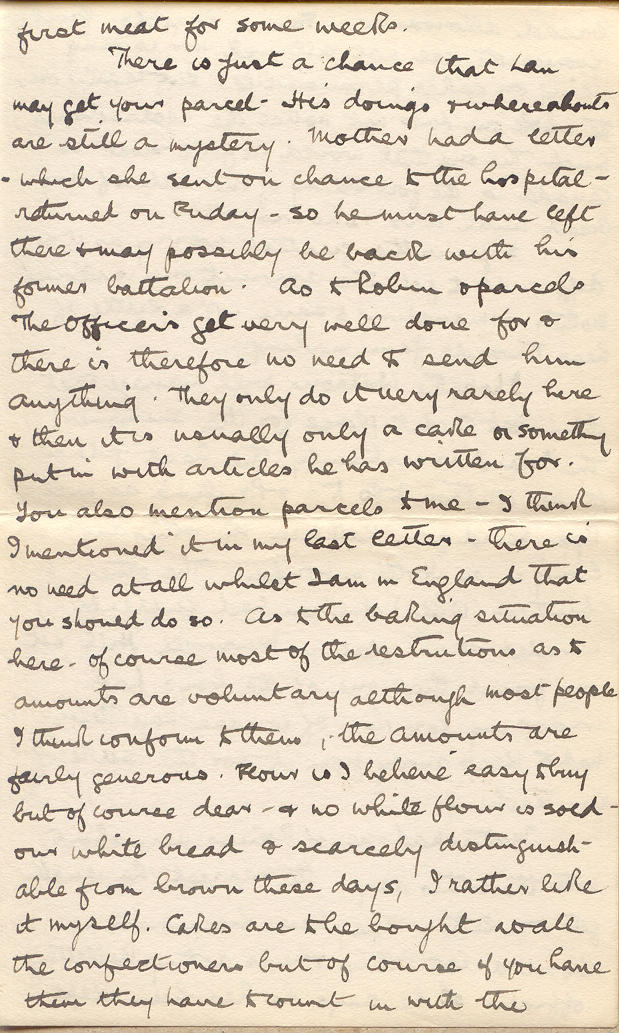 first meat for some weeks.
There is just a chance that Ian
may get your parcel - His doings & whereabouts
are still a mystery. Mother had a letter
- which she sent on chance to the hospital -
returned on Friday - so he must have left
there & may possibly be back with his
former battalion. As to Robin & parcels
The Officers get very well done for &
there is therefore no need to send him
anything. They only do it very rarely here
& then it is usually only a cake or something
put in with articles he has written for.
You also mention parcels to me - I think
I mentioned it in my last letter - there is
no need at all whilst I am in England that
you should do so. As to the baking situation
here - of course most of the restrictions as to
amounts are voluntary although most people
I think conform to them, the amounts are
fairly generous. Flour is I believe easy to buy
but of course dear - & no white flour is sold -
our white bread is scarcely distinguish-
able from brown these days, I rather like
it myself. Cakes are to be bought at all
the confectioners but of course if you have
them they have to count in with the